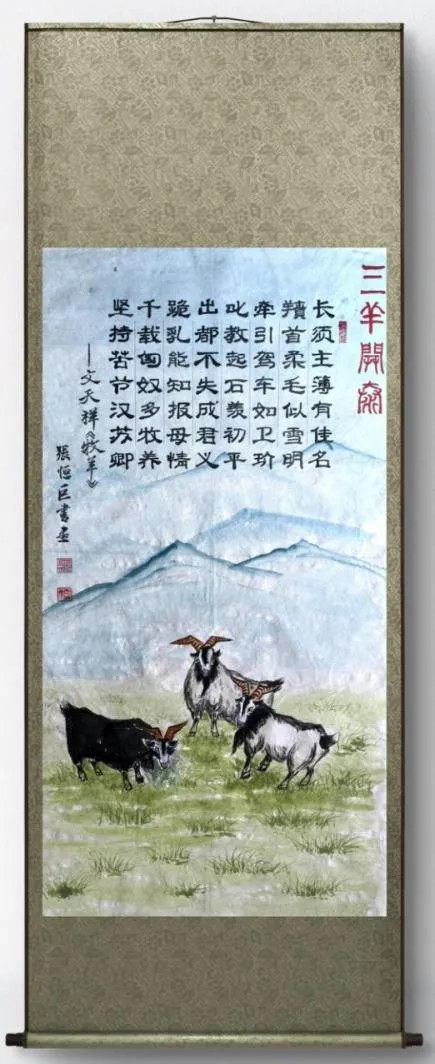 三羊開泰
长须主薄有佳名
羵首柔毛似雪明
牵引驾车如卫玠
叱教起石羡初平
出都不失成君义
跪乳能知报母情
千载匈奴多牧养
坚持苦节汉苏卿
——文天祥《牧羊》
張恒巨書畫